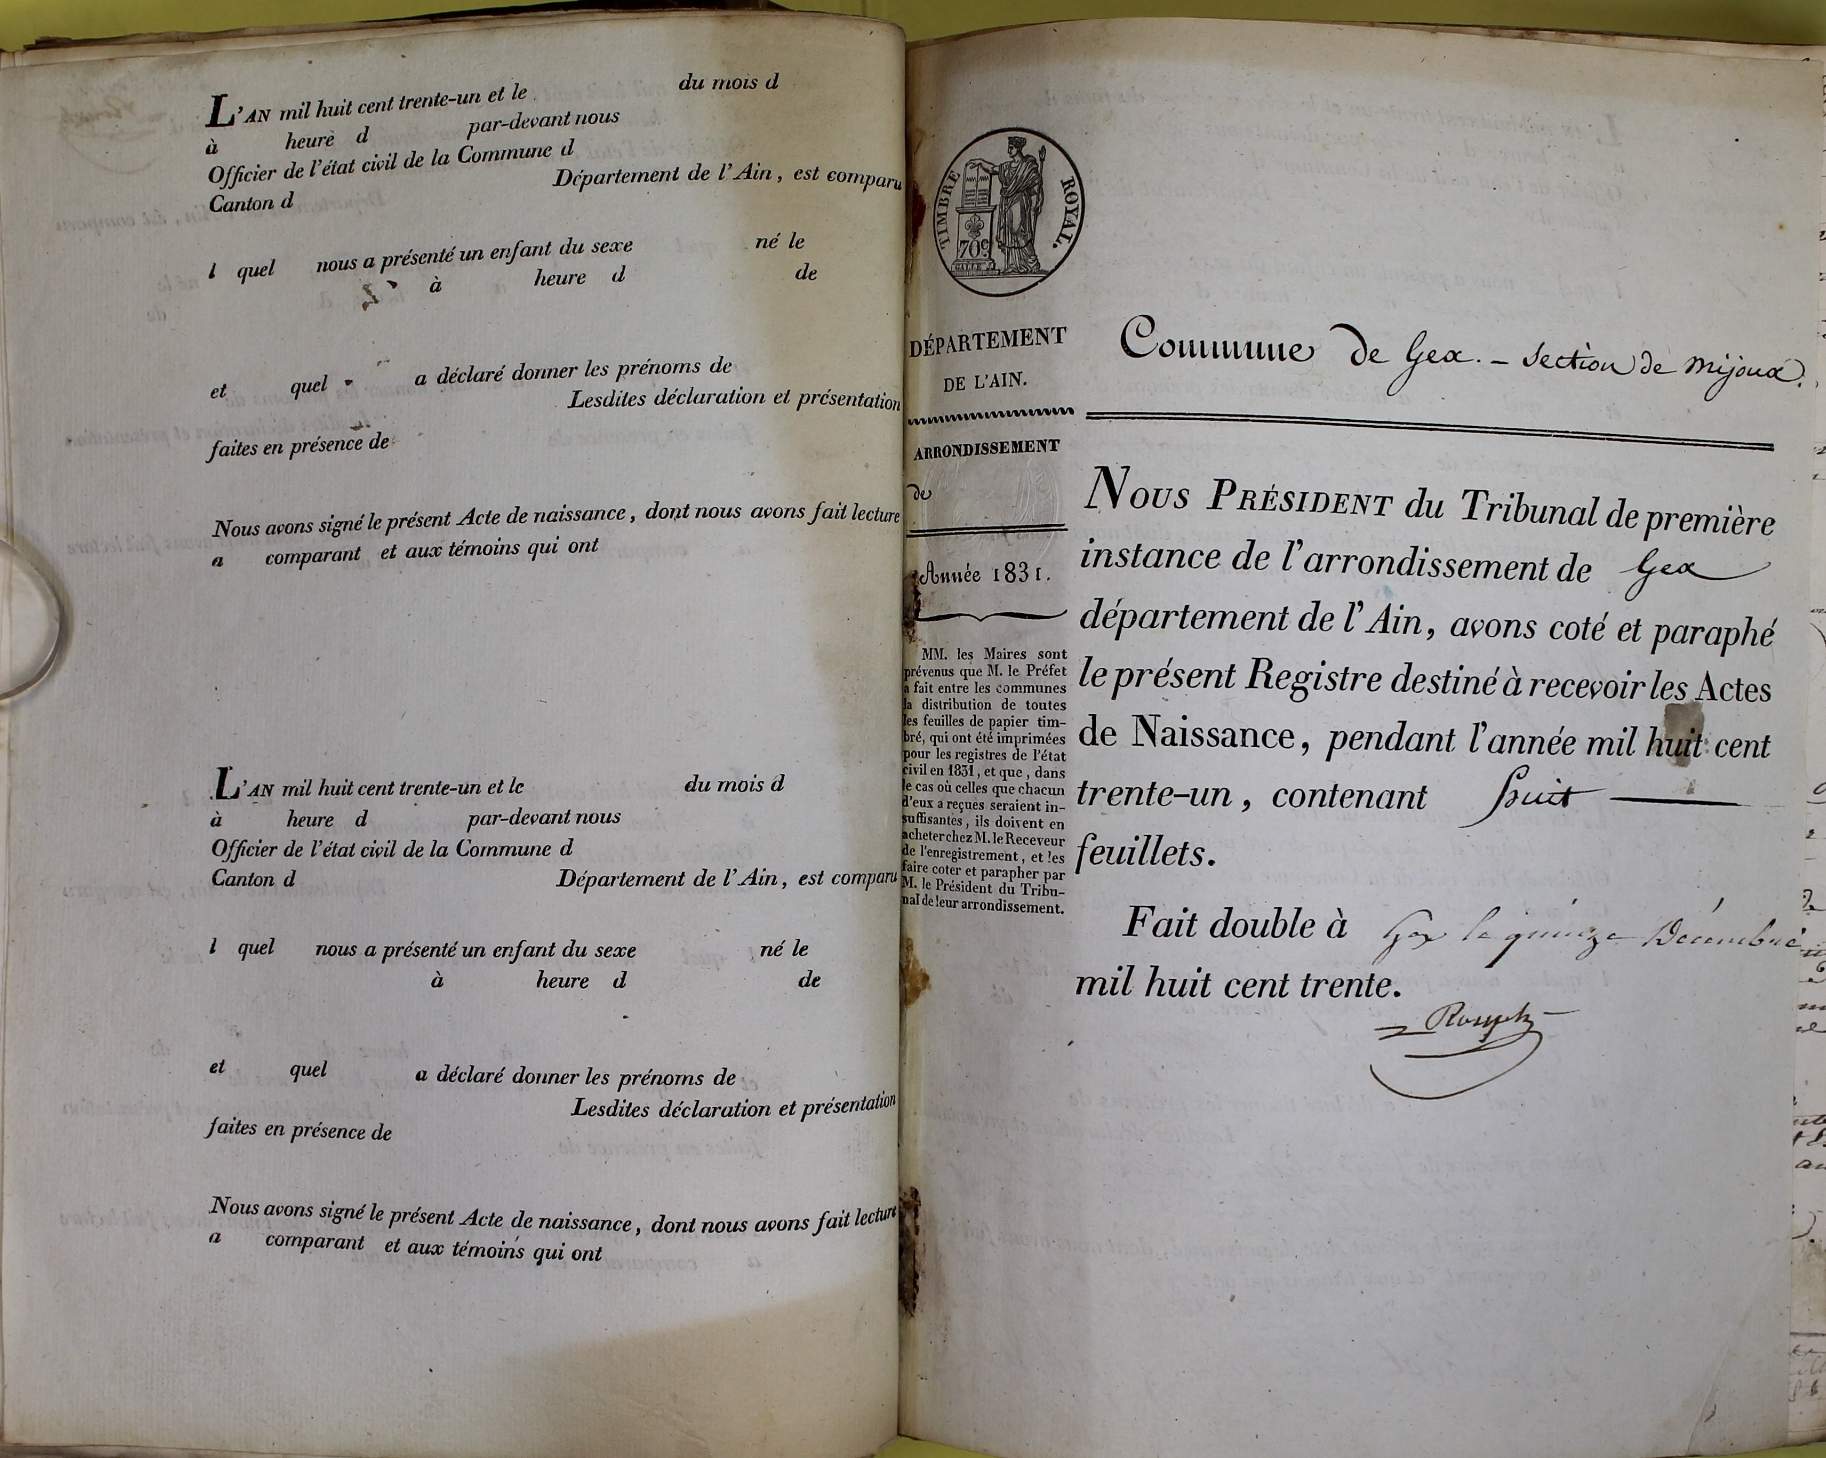 L'AN mil huit cent trente-un et le du mois d
à heure d par-devant nous
Officier de l'état civil de la Commune d
Canton d Département de l'Ain, est comparu
l quel nous a présenté un enfant du sexe né le
à heure d de
et quel a déclaré donner les prénoms de
Lesdites déclaration et présentation
faites en présence de
Nous avons signé le présent Acte de naissance, dont nous avons fait lecture
a comparant et aux témoins qui ont
L'AN mil huit cent trente-un et le du mois d
à heure d par-devant nous
Officier de l'état civil de la Commune d
Canton d Département de l'Ain, est comparu
l quel nous a présenté un enfant du sexe né le
à heure d de
et quel a déclaré donner les prénoms de
Lesdites déclaration et présentation
faites en présence de
Nous avons signé le présent Acte de naissance, dont nous avons fait lecture
a comparant et aux témoins qui ont
TIMBRE ROYAL.
70c
DÉPARTEMENT
DE L'AIN.
ARRONDISSEMENT
de
Année 1831.
MM. les Maires sont
prévenus que M. le Préfet
a fait entre les communes
la distribution de toutes
les feuilles de papier tim-
bré, qui ont été imprimées
pour les registres de l'état
civil en 1831, et que, dans
le cas où celles que chacun
d'eux a reçues seraient in-
suffisantes, ils doivent en
acheter chez M. le Receveur
de l'enregistrement, et les
faire coter et parapher par
M. le Président du Tribu-
nal de leur arrondissement.
Commune de Gex. - Section de Mijoux.
NOUS PRÉSIDENT du Tribunal de première
instance de l'arrondissement de Gex
département de l'Ain, avons coté et paraphé
le présent Registre destiné à recevoir les Actes
de Naissance, pendant l'année mil huit cent
trente-un, contenant huit
feuillets.
Fait double à Gex le quinze Décembre
mil huit cent trente.